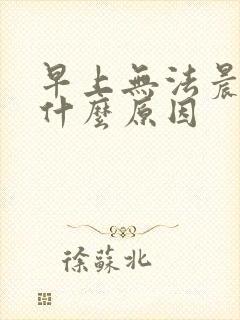 早上無法晨
什麼原因
徐蘇北